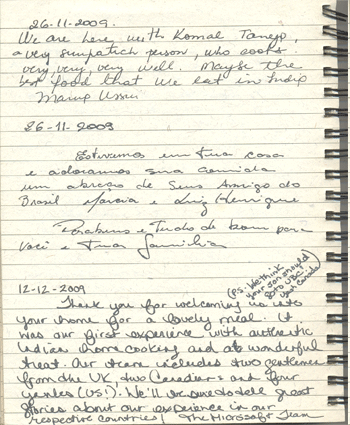 26-11-2009.
We are here with Komal Taneja,
a very simpatich person, who cooks
very, very, very well. Maybe the
best food that we eat in India
26-11-2009
Estivemos em tua casa
e adoramos sua comida
um abraço de seus amigo do
Brasil Marcia e Luiz Henrique
Parabens e tudo de bom para
você e tua familia
12-12-2009
(P.S: We think
your son should
go to UBC!
Yeah Canada)
Thank you for welcoming us into
your home for a lovely meal. It
was our first experience with authentic
Indian home cooking and a wonderful
treat. Our team includes two gentlemen
from the UK, two Canadians and four
yankees (US!). We'll be sure to tell great
stories about our experience in our
respective countries! The Microsoft Team